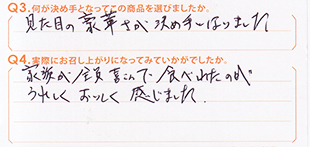 Q3.何が決め手となってこの商品を選びましたか。
見た目の豪華さが決め手となりました
Q4.実際にお召し上がりになってみていかがでしたか。
家族が全員喜んで食べれたのが
うれしくおいしく感じました。